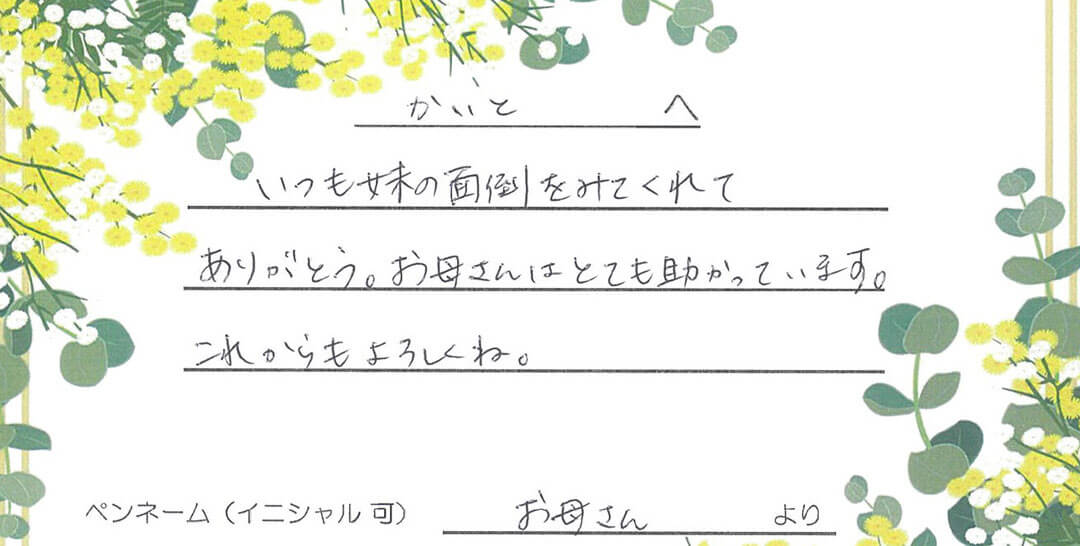 かいと へ
いつも妹の面倒をみてくれて
ありがとう。お母さんはとても助かっています。
これからもよろしくね。
ペンネーム（イニシャル 可） お母さん より